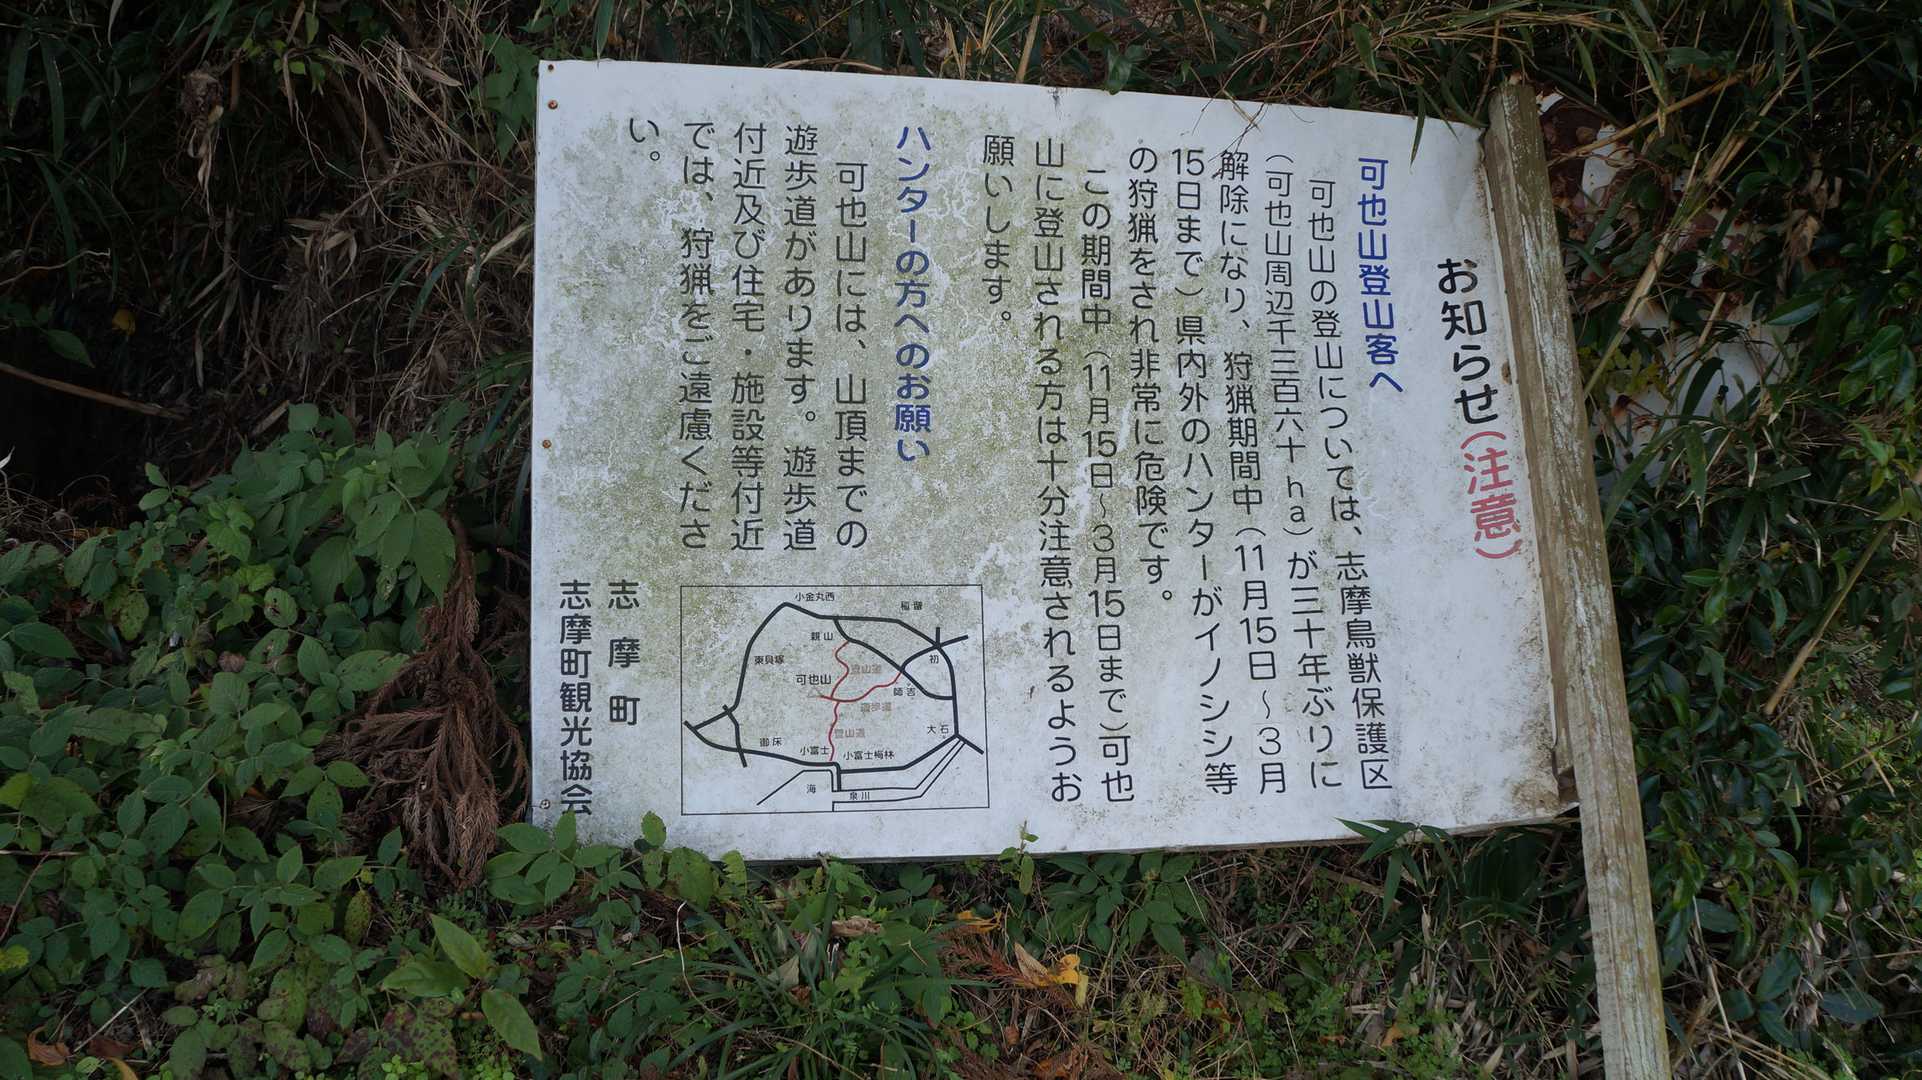 お知らせ(注意)
可也山登山客へ
可也山の登山については、志摩鳥獣保護区
(可也山周辺千三百六十ha)が三十年ぶりに
解除になり、狩猟期間中(11月15日～3月
15日まで)県内外のハンターがイノシシ等
の狩猟をされ非常に危険です。
この期間中(11月15日～3月15日まで)可也
山に登山される方は十分注意されるようお
願いします。
ハンターの方へのお願い
可也山には、山頂までの
遊歩道があります。遊歩道
付近及び住宅・施設等付近
では、狩猟をご遠慮くださ
い。
小金丸西
稲留
親山
初
東貝塚
登山道
可也山
師吉
遊歩道
大石
登山道
御床
小富士
小富士梅林
海
泉川
志摩町
志摩町観光協会